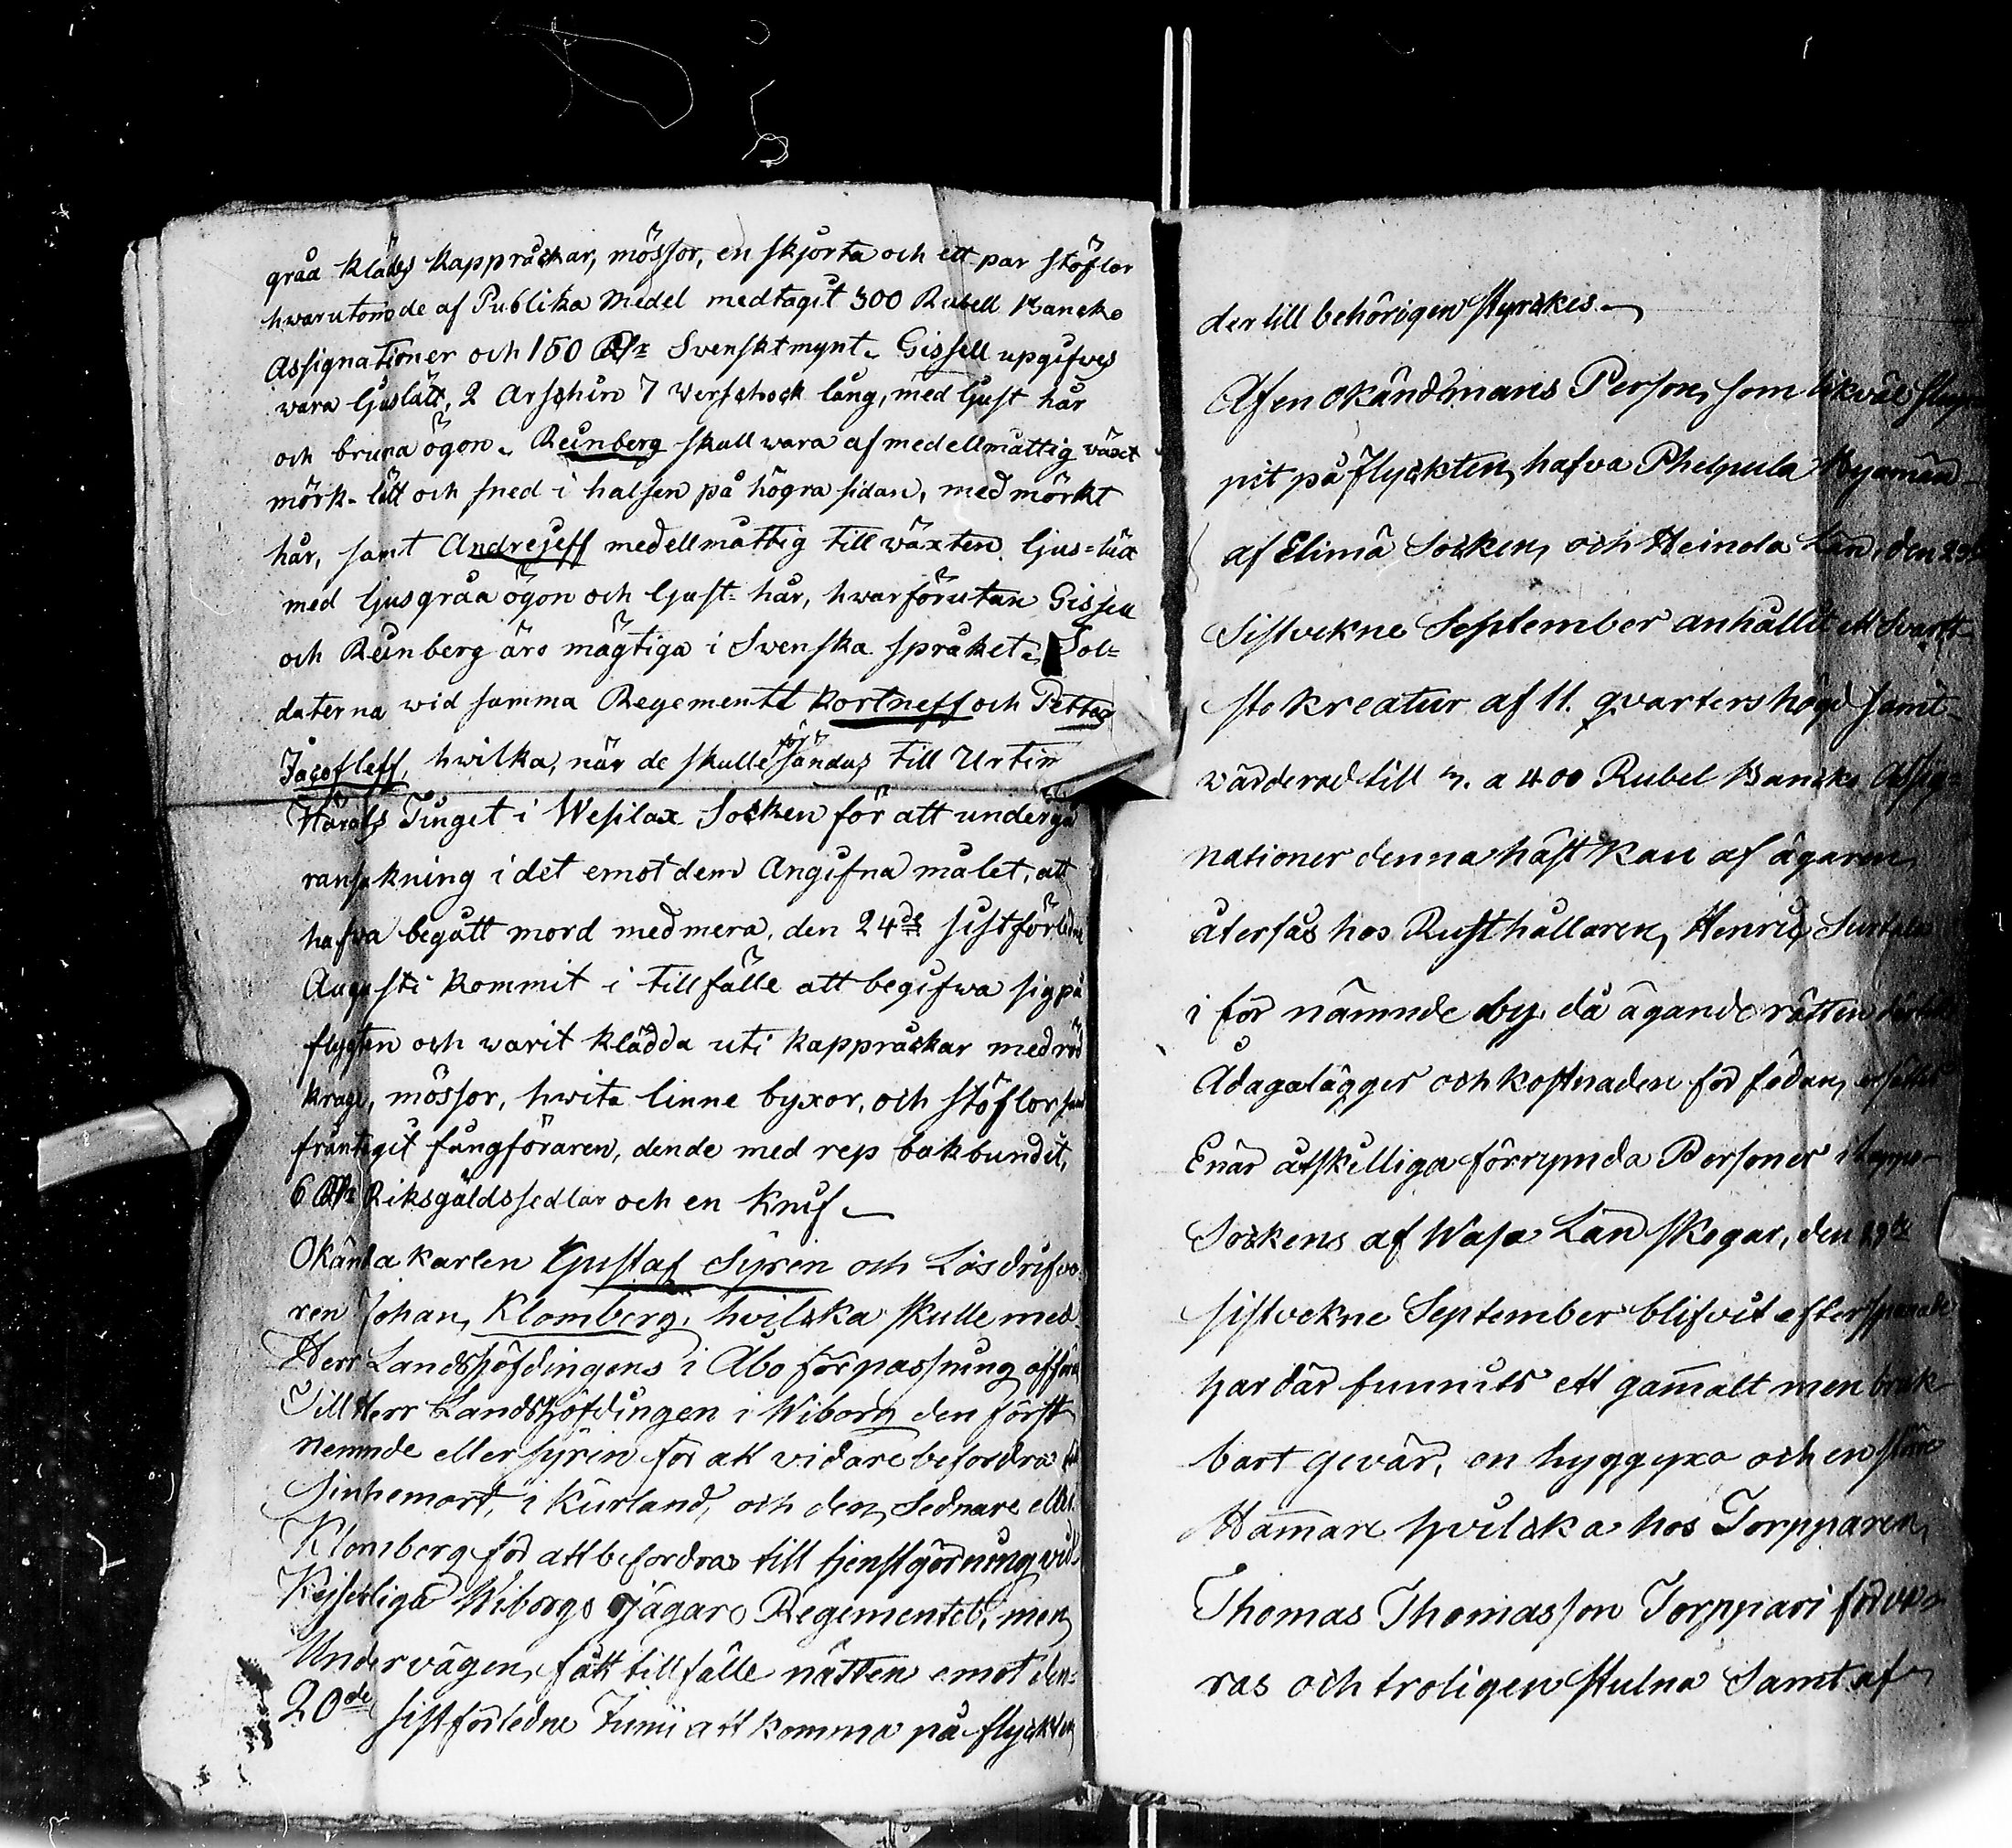 gråa klädes kappråckar, mössor, en skjorta och ett par stöflor
hwarutom de af Publika Medel medtagit 300 Rubell Banko
Assignationer och 150 Rdr Svenskt mynt. Gissell upgifves
vara ljuslätt, 2 Arschin 7 Verschock lång, med ljust hår
och bruna ögon. Reünberg skall wara af medellmåttig växt
mörk-lätt och sned i halsen på högra sidan, med mörkt
hår, samt Andrejeff medellmåttig till växten ljus=lätt
med ljusgråa ögon och ljust hår, hwarförutan Gissell
och Reünberg äro mägtiga i Svenska språket. Sol=
daterna wid samma Regemente Kortneff och Petter
Jacofleff, hwilka, när de skulle försändas till Urtim
Härads Tinget i Wesilax Socken för att undergå
ransakning i det emot dem Angifna målet, att
hafva begått mord med mera, den 24de sistförledne
Augusti kommit i tillfälle att begifwa sig på
flygten och warit klädda uti kappråckar med röd
krage, mössor, hwita linne byxor, och stöflor samt
fråntagit fångföraren, den de med rep bakbundit,
6 Rdr Riksgäldssedlar och en Knif.
Okända karlen Gustaf Syrén och Lösdrifva-
ren Johan Klomberg, hvilcka skulle med
Herr Landshöfdingens i Åbo förpassning afföras
Till Herr Landshöfdingen i Wiborg den först
nemnde eller Syrén för att vidare befordras till
Sin hemort, i Kurland, och den Sednare eller
Klomberg för att befordras till tjenstgörning vid
Kejserliga Wiborgs Jägare Regementet, men
Undervägen, fått tillfälle natten emot den
20de sistförledne Junii att komma på flyckten
der till behörigen Styrckes.
Af en okänd mans Person, som likväl slup-
pit på flyckten, hafva Phelpula Byamän
af Elimä Socken, och Heinola Län, den
Sistvekne September anhållit ett Svart
sto kreatur af 11. qvarters högd samt
värderad till 3. a 400 Rubel Banko Assig-
nationer denna häst kan af ägaren,
återfås hos Rusthållaren, Henric
i för nämnde by, då ägande rätten
Ådagalägges och kostnaden för födan, ersättes
Enär åtskilliga förrymda Personer i
Sockens af Wasa Län Skogar, den 29de
sistvekne September blifvit efterspanade
har där funnits ett gamalt men bruk-
bart gevär, en huggyxa och en större
Hamare hvilcka hos Torpparen,
Thomas Thomasson Torppari förva-
ras och troligen Stulna Samt af